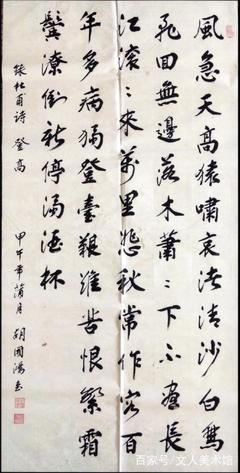 風急天高猿嘯哀渚清沙白鳥
飛回無邊落木蕭〻下不盡長
江滾〻來萬里悲秋常作客百
年多病獨登臺艱難苦恨繁霜
鬢潦倒新停濁酒杯
錄杜甫詩 登高 甲午年蒲月 胡國
百家号/文人美术馆